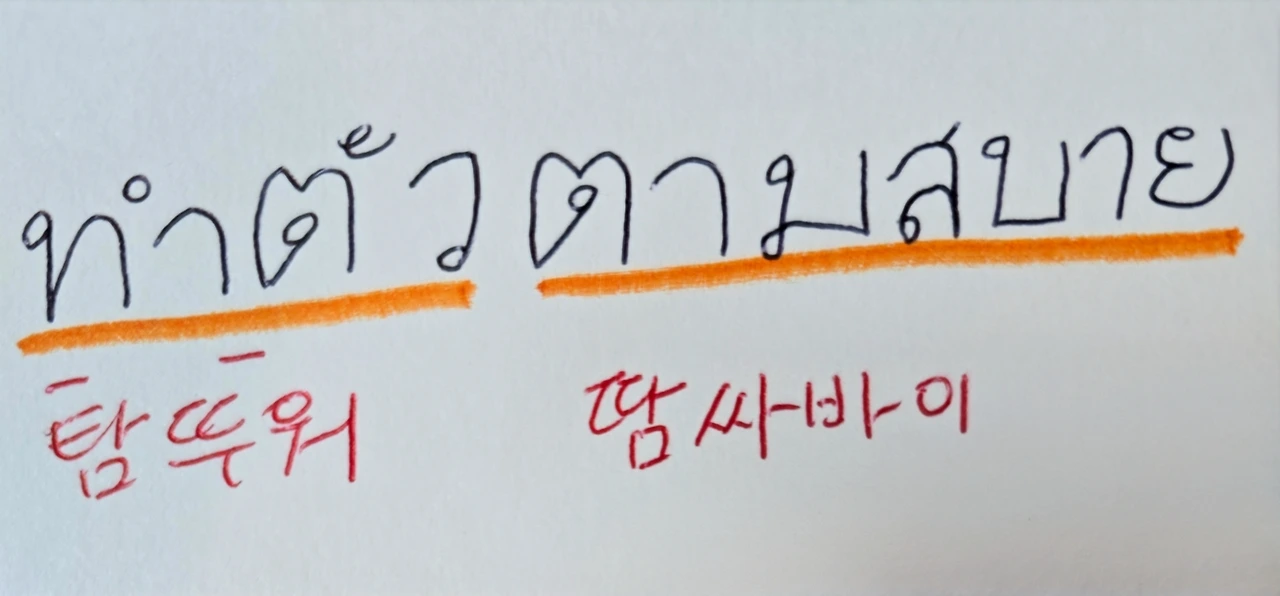 ทำตัวตามสบาย
탐뚜워 땀싸바이